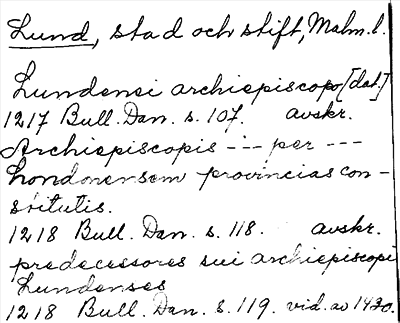 Lund, stad och stift, Malm. l.
Lundensi archiepiscopo [dat.]
1217 Bull. Dan. s. 107. avskr.
Archiepiscopis --- per ---
Londonensem provincias con-
stitutis.
1218 Bull. Dan. s. 118. avskr.
predecessores sui archiepiscopi
Lundenses
1218 Bull. Dan. s. 119. vid. av 1430.